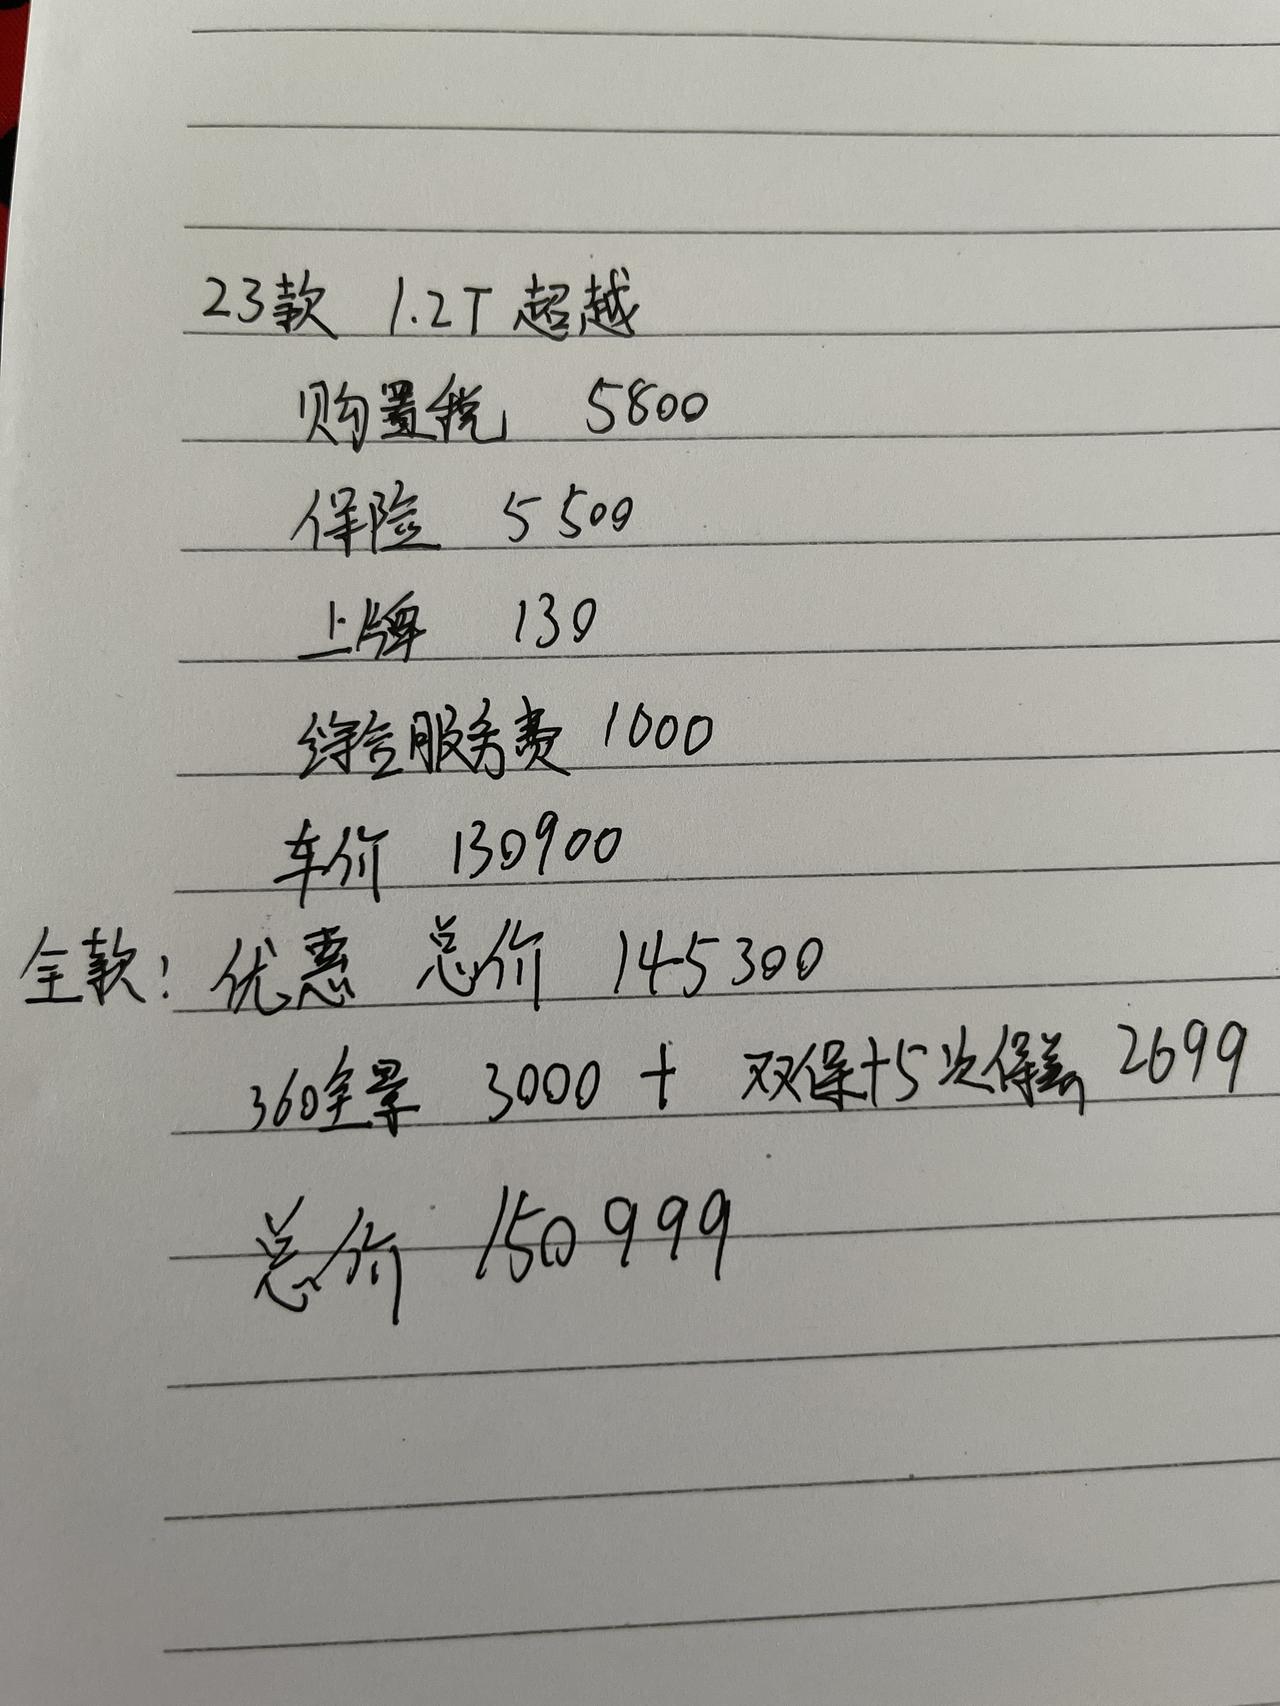 23款 1.2T 超越
购置税 5800
保险 5500
上牌 130
综合服务费 1000
车价 130900
全款: 优惠 总价 145300
360全景 3000 + 双保+5次保养 2699
总价 150999